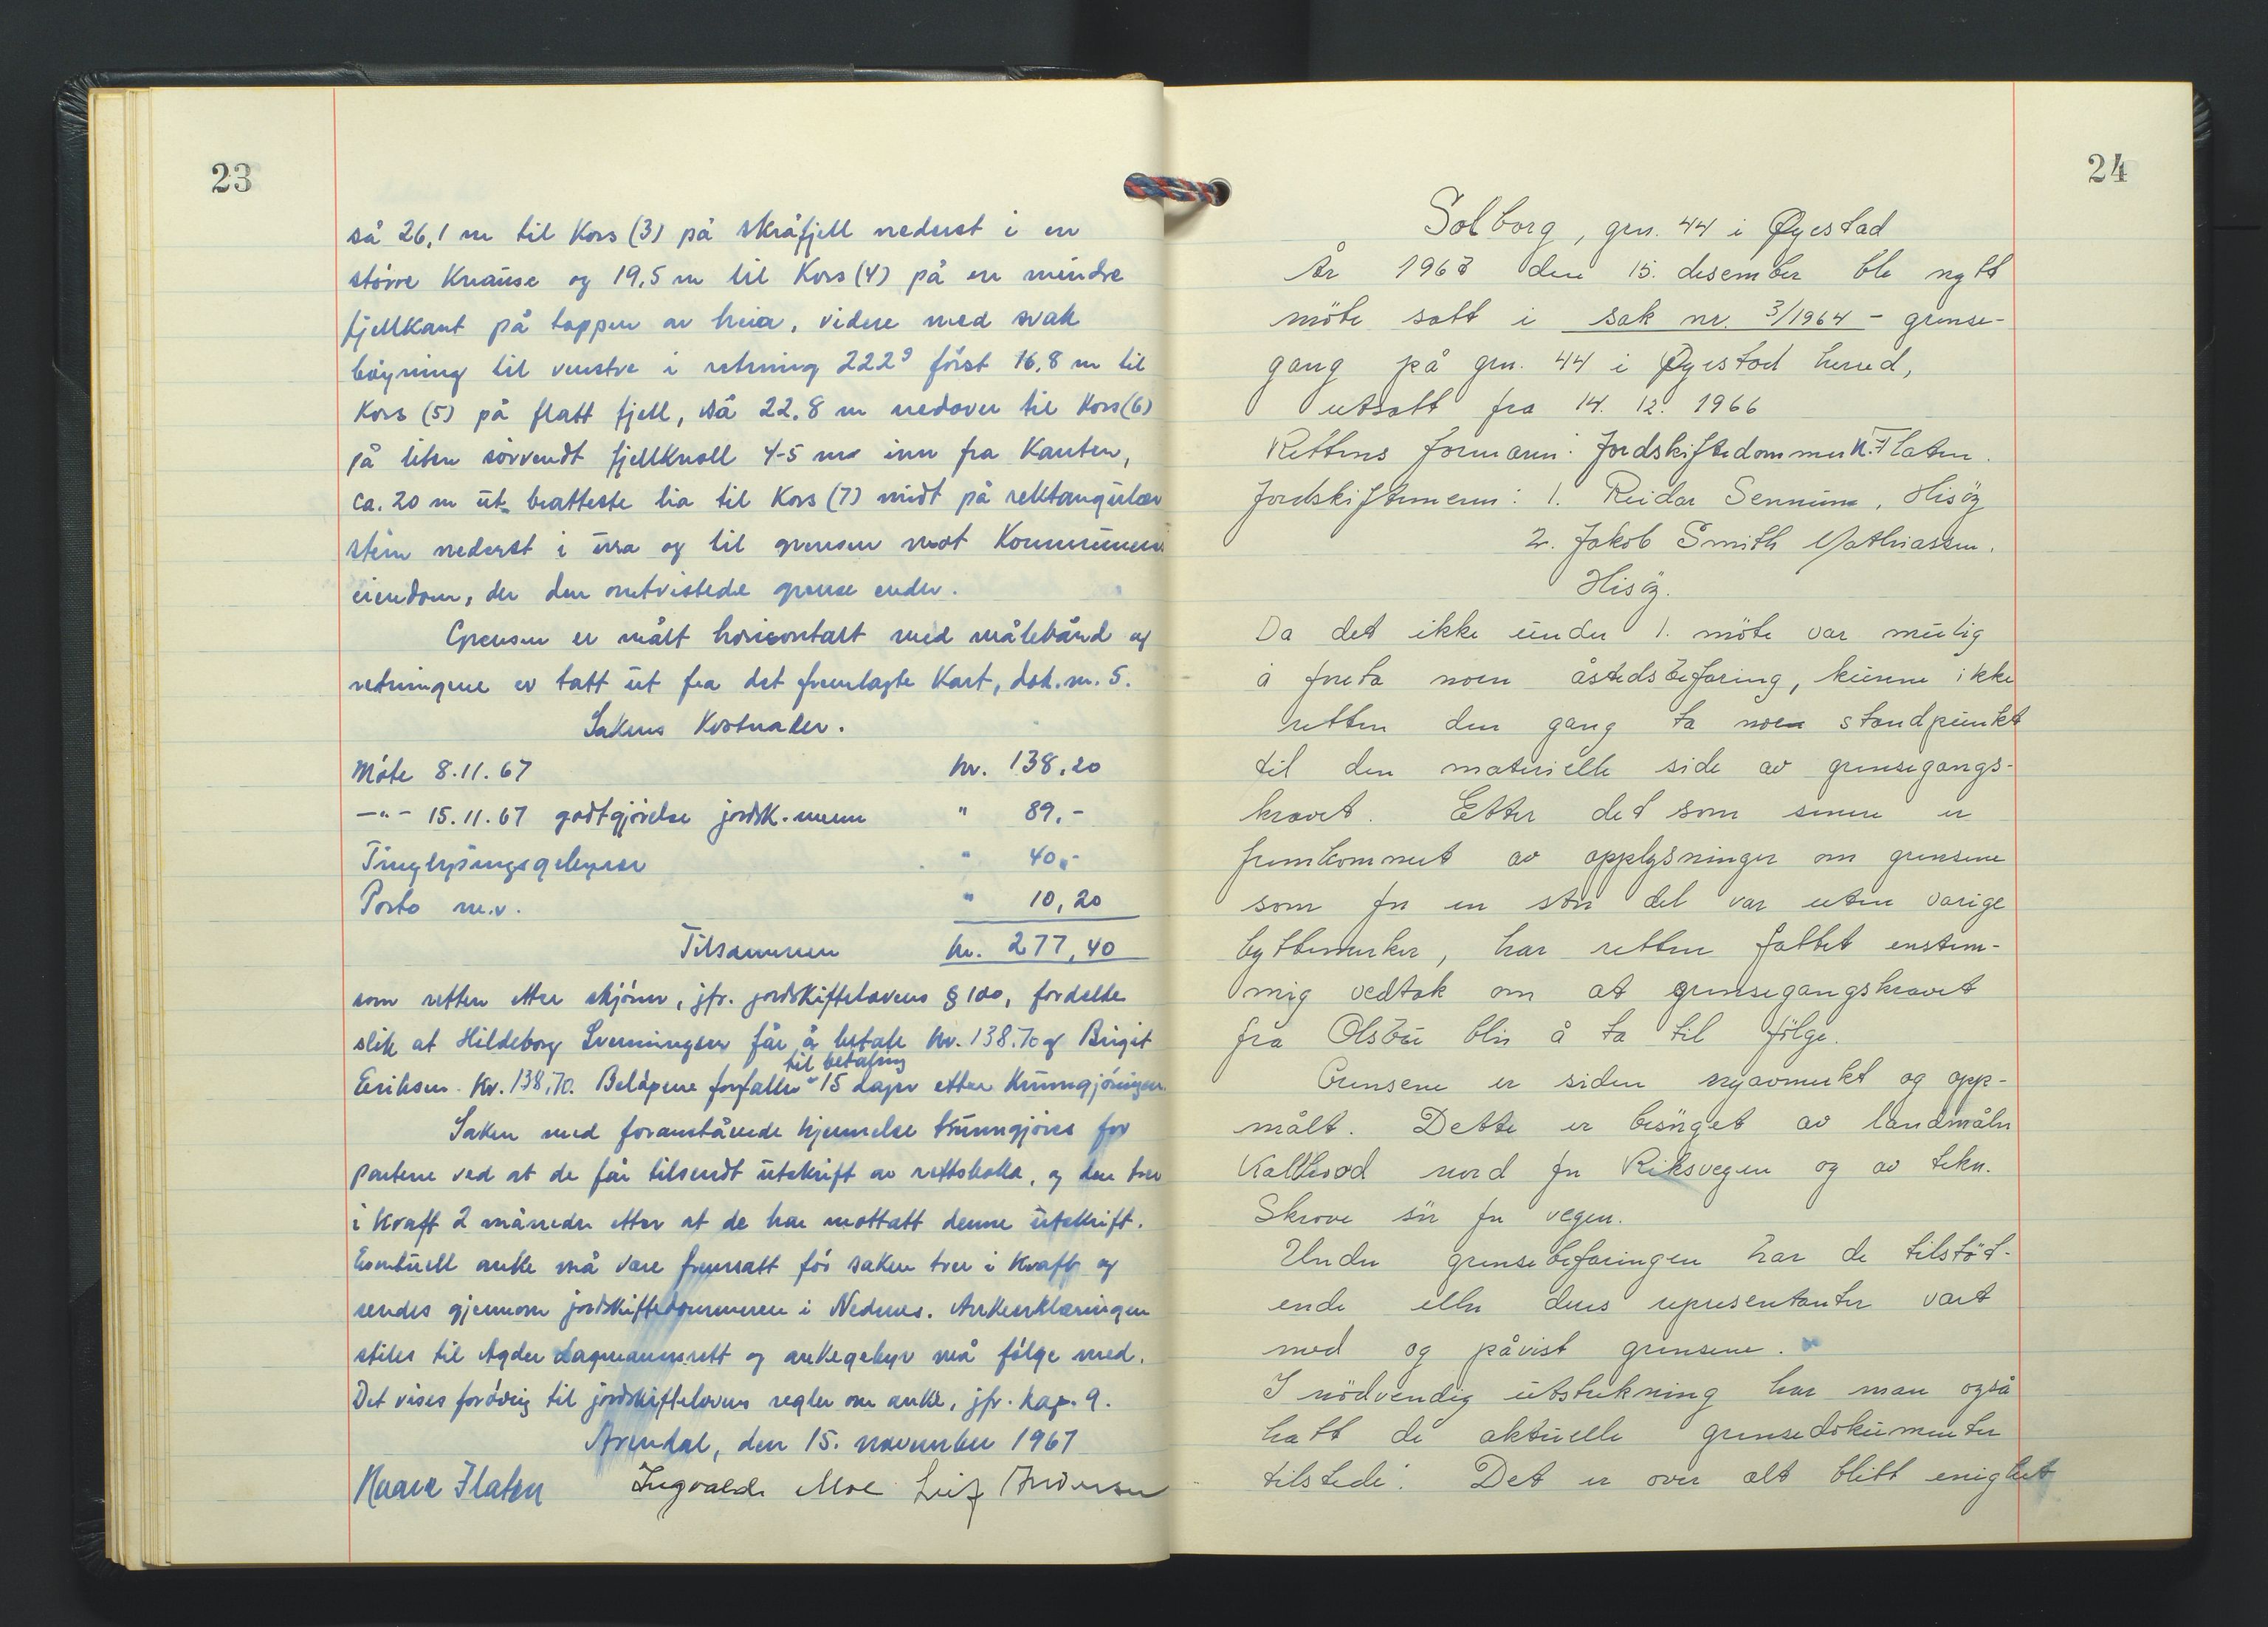 23
så 26,1 m til Kors (3) på skråfjell nederst i en
större Knause og 19,5 m til Kors (4) på en mindre
fjellkant på toppen av heia, videre med svak
böyning til venstre i retning 222g först 16,8 m til
Kors (5) på flatt fjell, så 22,8 m nedover til Kors (6)
på liten sörvendt fjellknoll 4-5 m inn fra Kanten,
ca. 20 m ut bratteste lia til Kors (7) midt på rektangulær
stein nederst i ura og til grensen mot Kommunens
eiendom, der den omtvistede grense ender.
Grensen er målt horisontalt med målebånd og
retningene er tatt ut fra det fremlagte Kart, dok. nr. 5.
Sakens Kostnader.
Möte 8.11.67 kr. 138,20
—"— 15.11.67 godtgjörelse jordsk.menn " 89,-
Tinglysingsgebyrer " 40,-
Porto m.v. " 10,20
Tilsammen kr. 277,40
som retten etter skjönn, jfr. jordskiftelovens § 100, fordelte
slik at Hildeborg Svenningsen får å betale kr. 138.70 og Birgit
Eeriksen Kr. 138,70. Belöpene forfaller til betaling 15 dager etter Kunngjöringen.
Saken med foranstående hjemmelse Kunngjöres for
partene ved at de får tilsendt utskrift av rettsboka, og den trer
i Kraft 2 måneder etter at de har mottatt denne utskrift.
Eventuell anke må være fremsatt för saken trer i Kraft og
sendes gjennom jordskiftedommeren i Nedenes. Ankeerklæringen
stiles til Agder Lagmannsrett og ankegebyr må fölge med.
Det vises forövrig til jordskiftelovens regler om anke, jfr. Kap. 9.
Arendal, den 15. november 1967
Kaare Flaten Ingvald Moe Leif Andersen
24
Solborg, grn. 44 i Øyestad
År 1967 den 15. desember ble nytt
möte satt i sak nr. 3/1964 - grense-
gang på grn. 44 i Øyestad herred,
utsatt fra 14. 12. 1966
Rettens formann: Jordskiftedommer K. Flaten.
Jordskiftemenn: 1. Reidar Sennum, Hisöy
2. Jakob Smith Mathiassen.
Hisöy.
Da det ikke under 1. möte var mulig
å foreta noen åstedsbefaring, kunne ikke
retten den gang ta noen standpunkt
til den materielle side av grensegangs-
kravet. Etter det som senere er
fremkommet av opplysninger om grensene
som for en stor del var uten varige
byttemerker, har retten fattet enstem-
mig vedtak om at grensegangskravet
fra Olsbu blir å ta til fölge.
Grensene er siden nyavmerkt og opp-
målt. Dette er besörget av landmåler
Kallhovd nord for Riksvegen og av tekn.
Skrove sör for vegen.
Under grensebefaringen har de tilstöt-
ende eller deres representanter vært
med og påvist grensene.
I nödvendig utstrekning har man også
hatt de aktuelle grensedokumenter
tilstede. Det er over alt blitt enighet